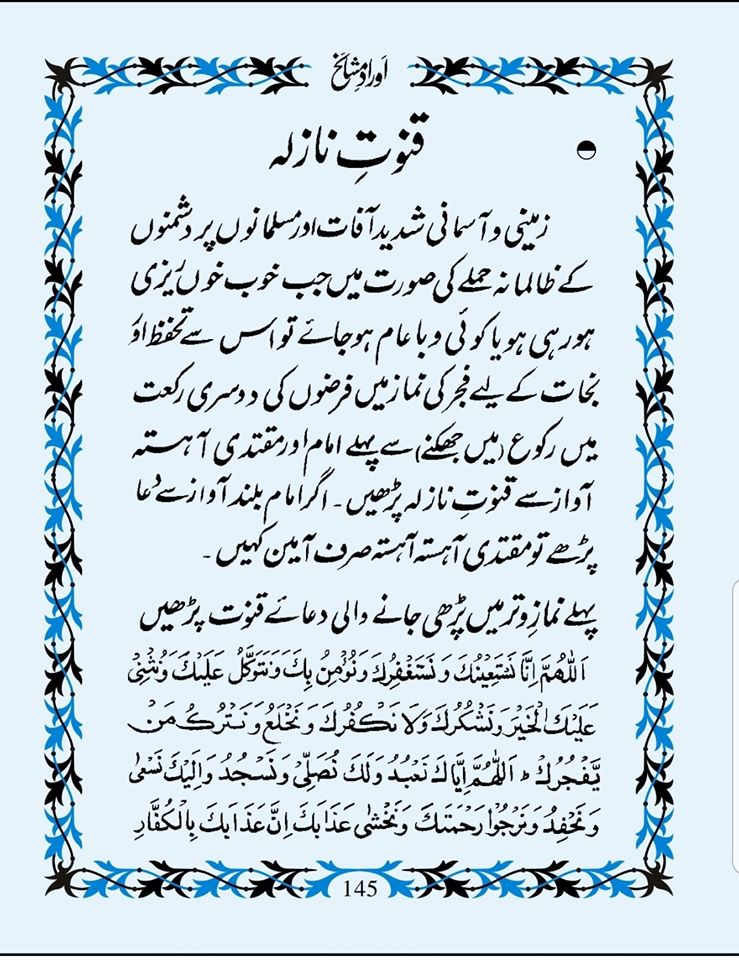 اَورادِ مشائخ
قنوتِ نازلہ
زمینی و آسمانی شدید آفات اور مسلمانوں پر دشمنوں
کے ظالمانہ حملے کی صورت میں جب خوب خوں ریزی
ہو رہی ہو یا کوئی وبا عام ہو جائے تو اس سے تحفظ اور
نجات کے لیے فجر کی نماز میں فرضوں کی دوسری رکعت
میں رکوع (میں جھکنے) سے پہلے امام اور مقتدی آہستہ
آواز سے قنوتِ نازلہ پڑھیں۔ اگر امام بلند آواز سے دعا
پڑھے تو مقتدی آہستہ آہستہ صرف آمین کہیں۔
پہلے نمازِ وتر میں پڑھی جانے والی دعائے قنوت پڑھیں
اَللّٰهُمَّ اِنَّا نَسْتَعِيْنُكَ وَنَسْتَغْفِرُكَ وَنُؤْمِنُ بِكَ وَنَتَوَكَّلُ عَلَيْكَ وَنُثْنِيْ
عَلَيْكَ الْخَيْرَ وَنَشْكُرُكَ وَلَا نَكْفُرُكَ وَنَخْلَعُ وَنَتْرُكُ مَنْ
يَّفْجُرُكَ ط اَللّٰهُمَّ اِيَّاكَ نَعْبُدُ وَلَكَ نُصَلِّيْ وَنَسْجُدُ وَاِلَيْكَ نَسْعٰى
وَنَحْفِدُ وَنَرْجُوْا رَحْمَتَكَ وَنَخْشٰى عَذَابَكَ اِنَّ عَذَابَكَ بِالْكُفَّارِ
145